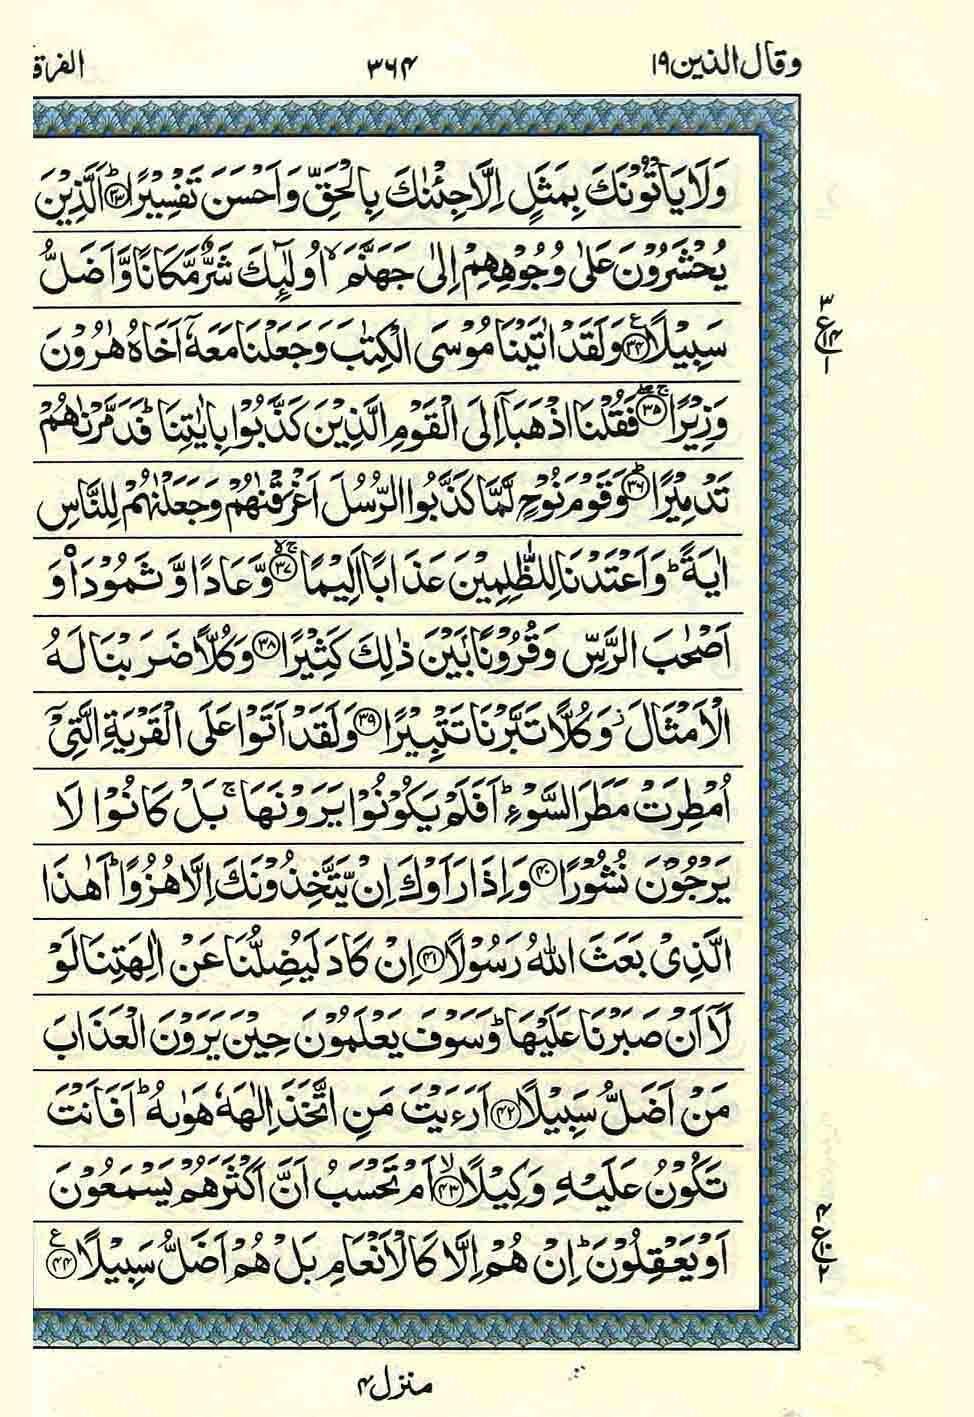 وقال الذين ١٩
٣٦٤
الفرق
وَلَا يَاْتُوْنَكَ بِمَثَلٍ اِلَّا جِئْنٰكَ بِالْحَقِّ وَاَحْسَنَ تَفْسِيْرًا ؕ ﴿٣٣﴾ اَلَّذِيْنَ
يُحْشَرُوْنَ عَلٰى وُجُوْهِهِمْ اِلٰى جَهَنَّمَ ۙ اُولٰٓئِكَ شَرٌّ مَّكَانًا وَّاَضَلُّ
سَبِيْلًا ﴿٣٤﴾ وَلَقَدْ اٰتَيْنَا مُوْسَى الْكِتٰبَ وَجَعَلْنَا مَعَهٗۤ اَخَاهُ هٰرُوْنَ
وَزِيْرًا ﴿٣٥﴾ فَقُلْنَا اذْهَبَاۤ اِلَى الْقَوْمِ الَّذِيْنَ كَذَّبُوْا بِاٰيٰتِنَا ؕ فَدَمَّرْنٰهُمْ
تَدْمِيْرًا ؕ ﴿٣٦﴾ وَقَوْمَ نُوْحٍ لَّمَّا كَذَّبُوا الرُّسُلَ اَغْرَقْنٰهُمْ وَجَعَلْنٰهُمْ لِلنَّاسِ
اٰيَةً ؕ وَاَعْتَدْنَا لِلظّٰلِمِيْنَ عَذَابًا اَلِيْمًا ﴿٣٧﴾ وَّعَادًا وَّثَمُوْدَا۟ وَ
اَصْحٰبَ الرَّسِّ وَقُرُوْنًۢا بَيْنَ ذٰلِكَ كَثِيْرًا ﴿٣٨﴾ وَكُلًّا ضَرَبْنَا لَهُ
الْاَمْثَالَ ؗ وَكُلًّا تَبَّرْنَا تَتْبِيْرًا ﴿٣٩﴾ وَلَقَدْ اَتَوْا عَلَى الْقَرْيَةِ الَّتِيْۤ
اُمْطِرَتْ مَطَرَ السَّوْءِ ؕ اَفَلَمْ يَكُوْنُوْا يَرَوْنَهَا ۚ بَلْ كَانُوْا لَا
يَرْجُوْنَ نُشُوْرًا ﴿٤٠﴾ وَاِذَا رَاَوْكَ اِنْ يَّتَّخِذُوْنَكَ اِلَّا هُزُوًا ؕ اَهٰذَا
الَّذِيْ بَعَثَ اللّٰهُ رَسُوْلًا ﴿٤١﴾ اِنْ كَادَ لَيُضِلُّنَا عَنْ اٰلِهَتِنَا لَوْ
لَاۤ اَنْ صَبَرْنَا عَلَيْهَا ؕ وَسَوْفَ يَعْلَمُوْنَ حِيْنَ يَرَوْنَ الْعَذَابَ
مَنْ اَضَلُّ سَبِيْلًا ﴿٤٢﴾ اَرَءَيْتَ مَنِ اتَّخَذَ اِلٰهَهٗ هَوٰىهُ ؕ اَفَاَنْتَ
تَكُوْنُ عَلَيْهِ وَكِيْلًا ۙ ﴿٤٣﴾ اَمْ تَحْسَبُ اَنَّ اَكْثَرَهُمْ يَسْمَعُوْنَ
اَوْ يَعْقِلُوْنَ ؕ اِنْ هُمْ اِلَّا كَالْاَنْعَامِ بَلْ هُمْ اَضَلُّ سَبِيْلًا ﴿٤٤﴾
منزل ٤